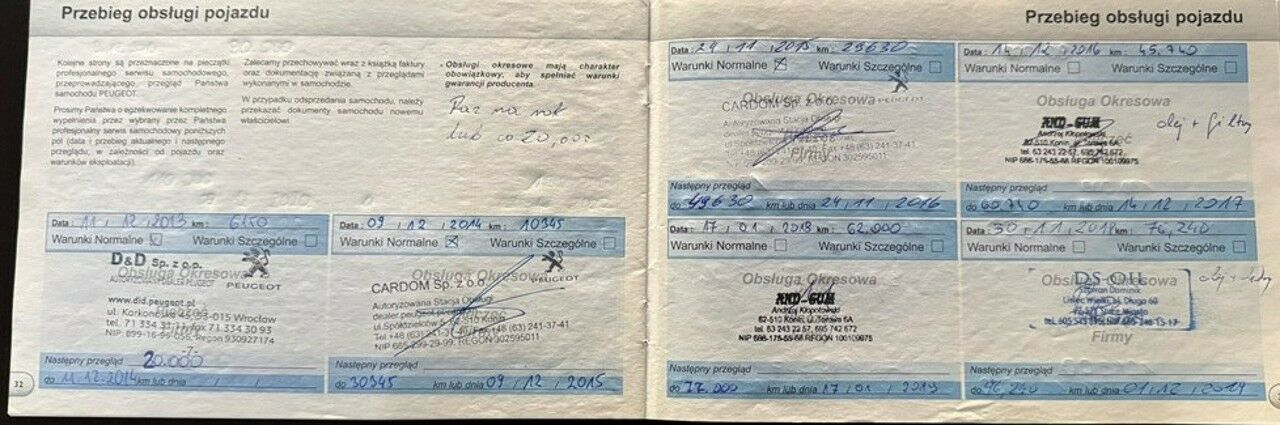 Przebieg obsługi pojazdu
Kolejne strony są przeznaczone na pieczątki
profesjonalnego serwisu samochodowego,
przeprowadzającego, przegląd Państwa
samochodu PEUGEOT.
Prosimy Państwa o egzekwowanie kompletnego
wypełnienia przez wybrany przez Państwa
profesjonalny serwis samochodowy poniższych
pól (data i przebieg aktualnego i następnego
przeglądu, w zależności od pojazdu oraz
warunków eksploatacji).
Zalecamy przechowywać wraz z książką faktury
oraz dokumentację związaną z przeglądami
wykonanymi w samochodzie.
W przypadku odsprzedania samochodu, należy
przekazać dokumenty samochodu nowemu
właścicielowi.
- Obsługi okresowe mają charakter
obowiązkowy, aby spełniać warunki
gwarancji producenta.
Raz na rok
lub co 20,000
Data: 11 , 12 , 2013 km: 6150
Warunki Normalne Warunki Szczególne
Obsługa Okresowa
D&D Sp. z o.o.
AUTORYZOWANY DEALER PEUGEOT
PEUGEOT
www.did.peugeot.pl
ul. Karkonoska 45, 53-015 Wrocław
tel. 71 334 31 11, fax 71 334 30 93
NIP: 899-16-99-056, Regon 930927174
Następny przegląd 20.000
do 11.12.2014 km lub dnia
Data: 09 , 12 , 2014 km: 10345
Warunki Normalne Warunki Szczególne
Obsługa Okresowa
PEUGEOT
CARDOM Sp. z o.o.
Autoryzowana Stacja Obsługi
dealer peugeot
Tel.+48 (63) Fax +48 (63) 241-37-41
NIP 665-299-29-99, REGON 302595011
Następny przegląd
do 30345 km lub dnia 09 , 12 , 2015
32
Przebieg obsługi pojazdu
Data: 24 , 11 , 2015 km: 29630
Warunki Normalne Warunki Szczególne
Obsługa Okresowa
PEUGEOT
CARDOM Sp. z o.o.
Autoryzowana Stacja Obsługi
Fax +48 (63) 241-37-41
REGON 302595011
Następny przegląd
do 49630 km lub dnia 24 , 11 , 2016
Data: 14 , 12 , 2016 km: 45.740
Warunki Normalne Warunki Szczególne
Obsługa Okresowa
AND-GUM
Andrzej Kłopotowski
62-510 Konin, ul. Torowa 6A
tel. 63 243 22 57, 695 742 672
NIP 666-175-55-68 REGON 100109975
olej + filtry
Następny przegląd
do 60.740 km lub dnia 14 , 12 , 2017
Data: 17 , 01 , 2018 km: 62.000
Warunki Normalne Warunki Szczególne
Obsługa Okresowa
AND-GUM
Andrzej Kłopotowski
62-510 Konin, ul. Torowa 6A
tel. 63 243 22 57, 695 742 672
NIP 666-175-55-68 REGON 100109975
Następny przegląd
do 77.000 km lub dnia 17 , 01 , 2019
Data: 30 , 11 , km: 76,240
Warunki Normalne Warunki Szczególne
Obsługa Okresowa
DS-OIL
Dominik
Firmy
olej +
Następny przegląd
do 96,240 km lub dnia 01 , 12 , 2019